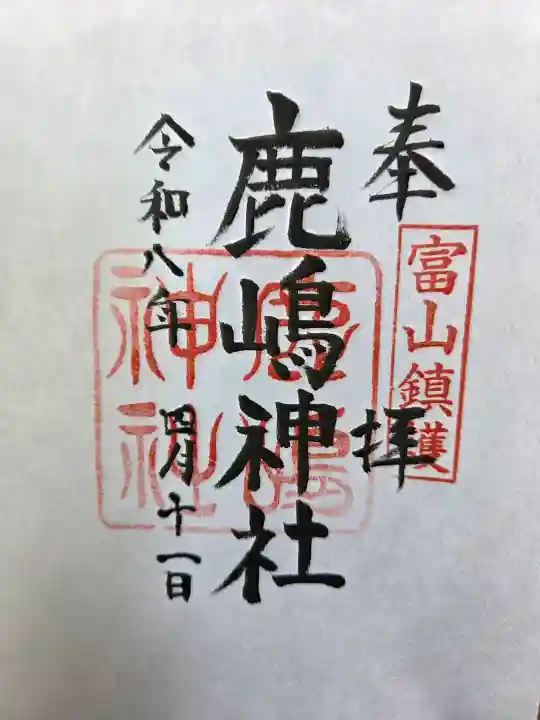 奉拝
富山鎮護
鹿嶋神社
鹿嶋
神社
令和八年 四月十一日